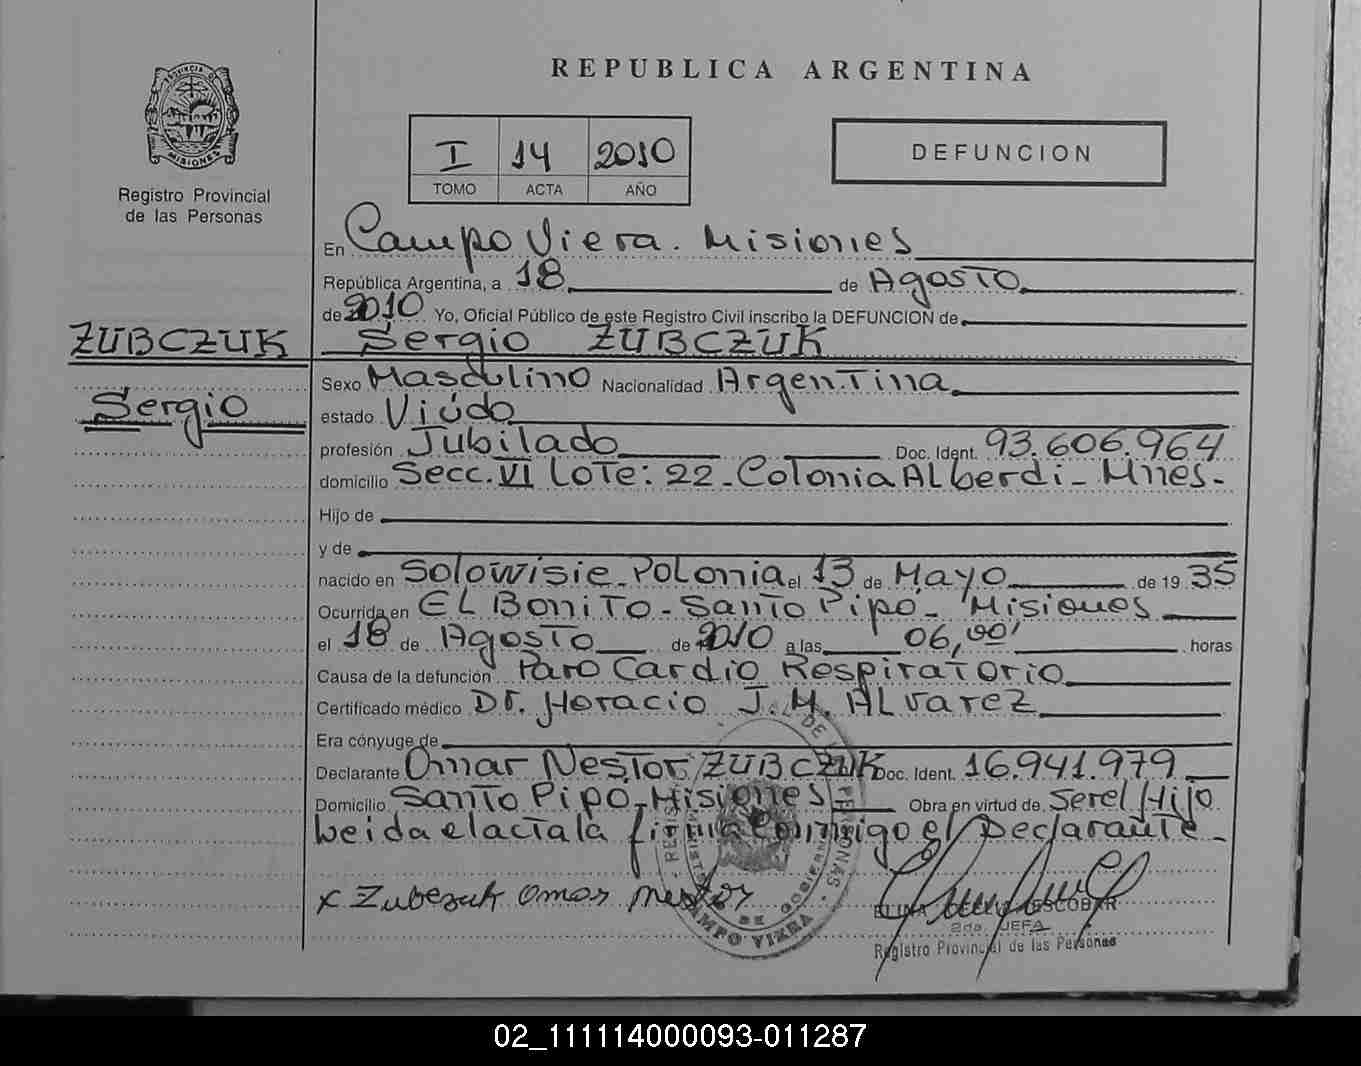 REPUBLICA ARGENTINA
PROVINCIA D MISIONES
Registro Provincial
de las Personas
I 14 2010
TOMO ACTA AÑO
DEFUNCION
En Campo Viera. Misiones
República Argentina, a 18 de Agosto
de 2010 Yo, Oficial Público de este Registro Civil inscribo la DEFUNCION de
ZUBCZUK
Sergio
Sergio ZUBCZUK
Sexo Masculino Nacionalidad Argentina
estado Viúdo
profesión Jubilado Doc. Ident. 93.606.964
domicilio Secc. VI Lote: 22 - Colonia Alberdi - Mnes.
Hijo de
y de
nacido en Solowisie - Polonia el 13 de Mayo de 1935
Ocurrida en EL Bonito - Santo Pipó - Misiones
el 18 de Agosto de 2010 a las 06,00' horas
Causa de la defunción Paro Cardio Respiratorio
Certificado médico Dr. Horacio J. M. Alvarez
Era cónyuge de
Declarante Omar Nestor ZUBCZUK Doc. Ident. 16.941.979
Domicilio Santo Pipó - Misiones Obra en virtud de Ser el Hijo
Leida el acta la firma Conmigo el Declarante
x Zubczuk Omar Nestor
ESCOBAR
2da. JEFA
Registro Provincial de las Personas
CAMPO VIERA
02_111114000093-011287